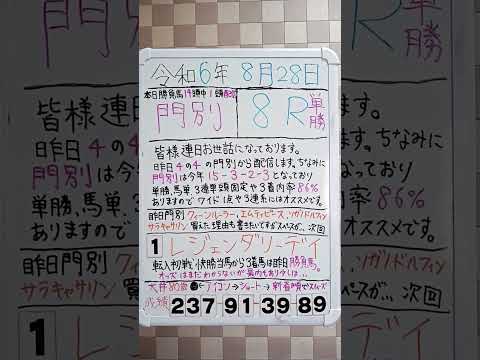 令和6年 8月28日
本日勝負馬19頭中1頭配信
門別 8R 単勝
皆様連日お世話になっております。
昨日4の4の門別から配信します。ちなみに
門別は今年15-3-2-3となっており
単勝、馬単、3連単頭固定や3着内率86%
ありますのでワイド1点や3連系にはオススメです。
昨日門別 クィーンルーラー、エムティピース、シガリドルフィン
サラキャサリン 買えた理由も書きたいですがスペースが… 次回
1 レジェンダリーデイ
転入初戦快勝当馬から3着馬は昨日勝負馬。
オッズはまだわからないが
天井80歳 アイコン→ショート→新着順でスムーズ
成績 237 91 39 89